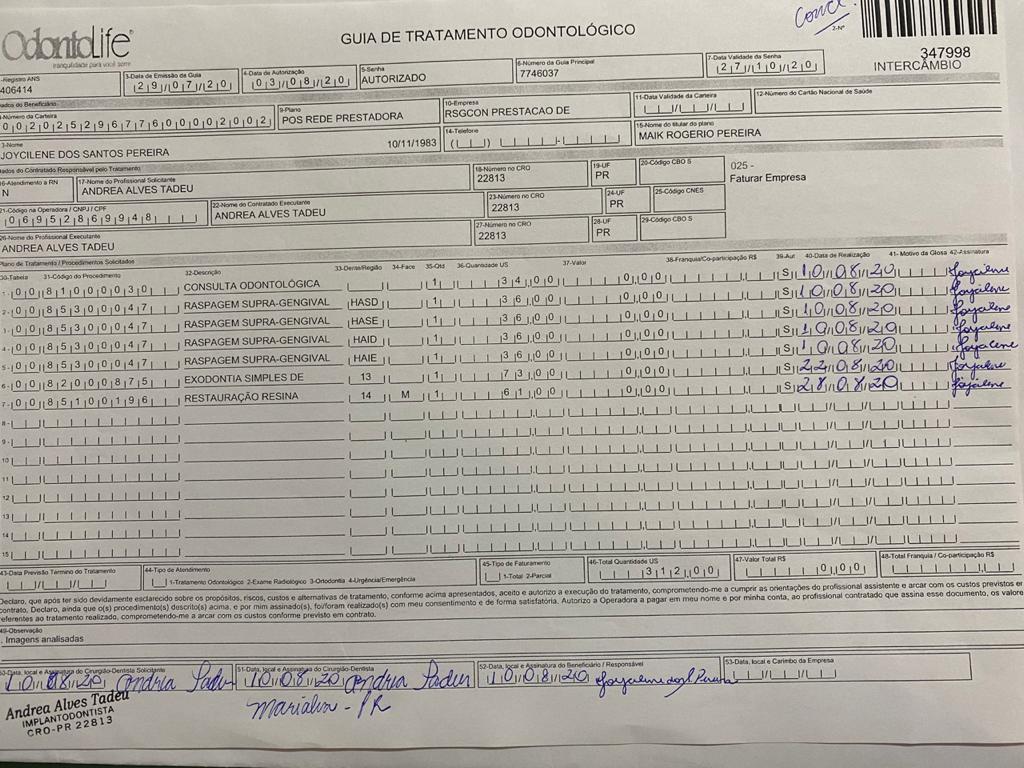 Conect.
OdontoLife
tranquilidade para você sorrir
GUIA DE TRATAMENTO ODONTOLÓGICO
2-Nº
347998
INTERCÂMBIO
1-Registro ANS
406414
3-Data de Emissão da Guia
29/07/20
4-Data de Autorização
03/08/20
5-Senha
AUTORIZADO
6-Número da Guia Principal
7746037
7-Data Validade da Senha
27/10/20
Dados do Beneficiário
8-Número da Carteira
00202529677600002002
9-Plano
POS REDE PRESTADORA
10-Empresa
RSGCON PRESTACAO DE
11-Data Validade da Carteira
12-Número do Cartão Nacional de Saúde
13-Nome
JOYCILENE DOS SANTOS PEREIRA 10/11/1983
14-Telefone
15-Nome do titular do plano
MAIK ROGERIO PEREIRA
Dados do Contratado Responsável pelo Tratamento
16-Atendimento a RN
N
17-Nome do Profissional Solicitante
ANDREA ALVES TADEU
18-Número no CRO
22813
19-UF
PR
20-Código CBO S
025 -
Faturar Empresa
21-Código na Operadora / CNPJ / CPF
06952869948
22-Nome do Contratado Executante
ANDREA ALVES TADEU
23-Número no CRO
22813
24-UF
PR
25-Código CNES
26-Nome do Profissional Executante
ANDREA ALVES TADEU
27-Número no CRO
22813
28-UF
PR
29-Código CBO S
Plano de Tratamento / Procedimentos Solicitados
30-Tabela 31-Código do Procedimento 32-Descrição 33-Dente/Região 34-Face 35-Qtd 36-Quantidade US 37-Valor 38-Franquia/Co-participação R$ 39-Aut 40-Data de Realização 41- Motivo da Glosa 42-Assinatura
1- 00 81000030 CONSULTA ODONTOLÓGICA 1 34,00 0,00 S 10/08/20 Joycilene
2- 00 85300047 RASPAGEM SUPRA-GENGIVAL HASD 1 36,00 0,00 S 10/08/20 Joycilene
3- 00 85300047 RASPAGEM SUPRA-GENGIVAL HASE 1 36,00 0,00 S 10/08/20 Joycilene
4- 00 85300047 RASPAGEM SUPRA-GENGIVAL HAID 1 36,00 0,00 S 10/08/20 Joycilene
5- 00 85300047 RASPAGEM SUPRA-GENGIVAL HAIE 1 36,00 0,00 S 10/08/20 Joycilene
6- 00 82000875 EXODONTIA SIMPLES DE 13 1 73,00 0,00 S 22/08/20 Joycilene
7- 00 85100196 RESTAURAÇÃO RESINA 14 M 1 61,00 0,00 S 28/08/20 Joycilene
8-
9-
10
11
12
13
14
15
43-Data Previsão Término do Tratamento
44-Tipo de Atendimento
1-Tratamento Odontológico 2-Exame Radiológico 3-Ortodontia 4-Urgência/Emergência
45-Tipo de Faturamento
1-Total 2-Parcial
46-Total Quantidade US
312,00
47-Valor Total R$
0,00
48-Total Franquia / Co-participação R$
Declaro, que após ter sido devidamente esclarecido sobre os propósitos, riscos, custos e alternativas de tratamento, conforme acima apresentados, aceito e autorizo a execução do tratamento, comprometendo-me a cumprir as orientações do profissional assistente e arcar com os custos previstos em
contrato. Declaro, ainda que o(s) procedimento(s) descrito(s) acima, e por mim assinado(s), foi/foram realizado(s) com meu consentimento e de forma satisfatória. Autorizo a Operadora a pagar em meu nome e por minha conta, ao profissional contratado que assina esse documento, os valores
referentes ao tratamento realizado, comprometendo-me a arcar com os custos conforme previsto em contrato.
49-Observação
. Imagens analisadas
50-Data, local e Assinatura do Cirurgião-Dentista Solicitante
10/08/20 Andréa Tadeu
51-Data, local e Assinatura do Cirurgião-Dentista
10/08/20 Andréa Tadeu
52-Data, local e Assinatura do Beneficiário / Responsável
10/08/20 Joycilene dos S Pereira
53-Data, local e Carimbo da Empresa
Marialva - PR
Andrea Alves Tadeu
IMPLANTODONTISTA
CRO-PR 22813